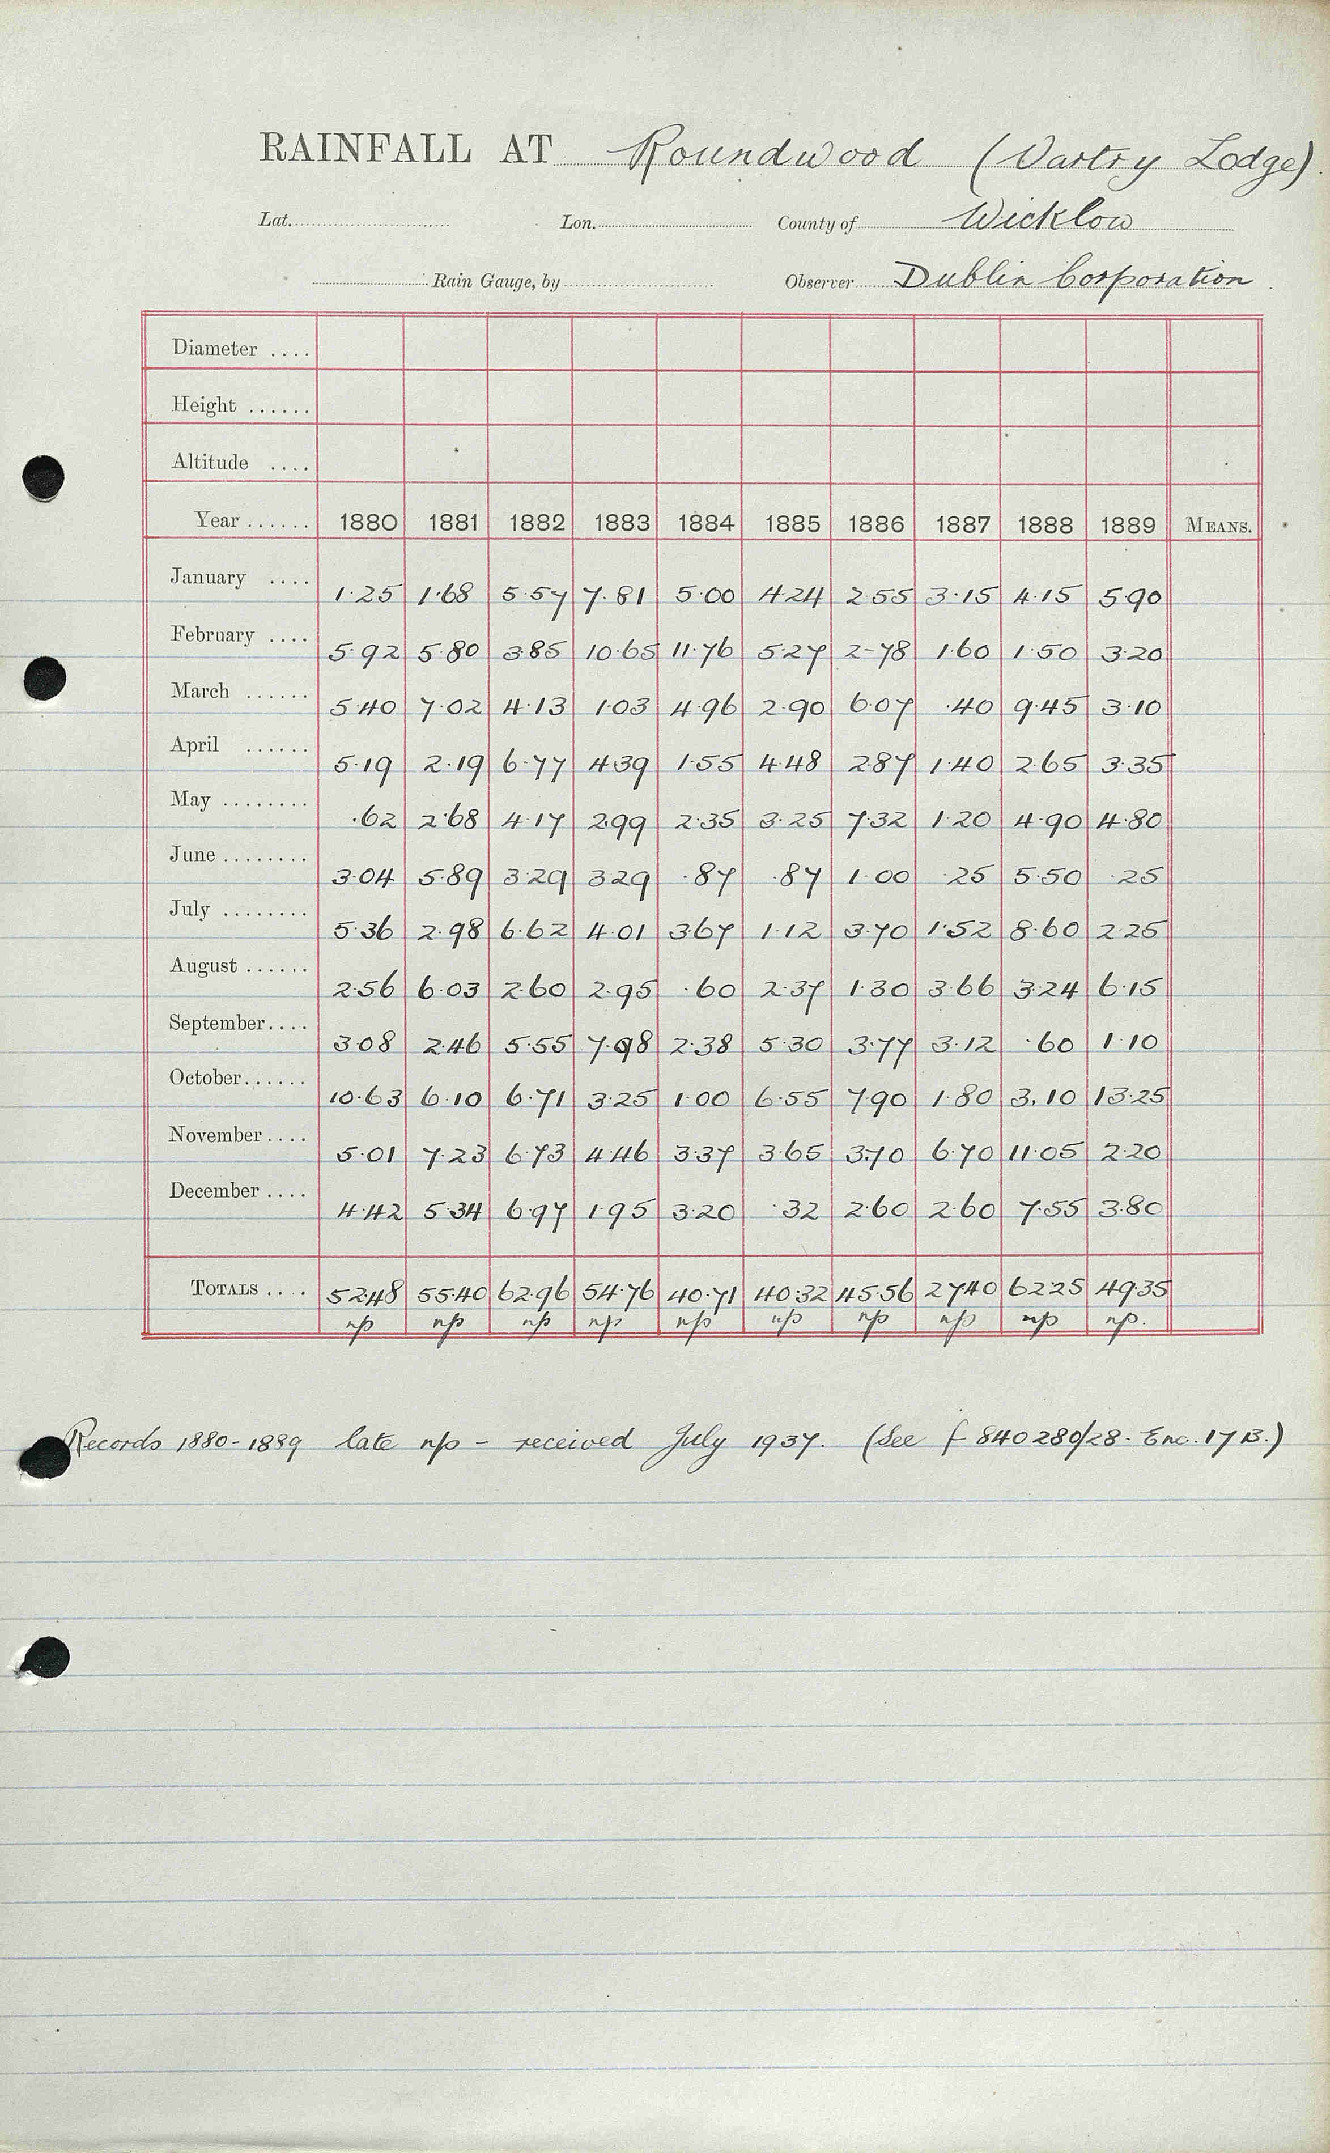 RAINFALL AT Roundwood (Vartry Lodge).
Lat. Lon. County of Wicklow
Rain Gauge, by Observer Dublin Corporation.
Diameter ....
Height ......
Altitude ....
Year ...... 1880 1881 1882 1883 1884 1885 1886 1887 1888 1889 MEANS.
January .... 1·25 1·68 5·57 7·81 5·00 4·24 2·55 3·15 4·15 5·90
February .... 5·92 5·80 3·85 10·65 11·76 5·27 2·78 1·60 1·50 3·20
March ...... 5·40 7·02 4·13 1·03 4·96 2·90 6·07 ·40 9·45 3·10
April ...... 5·19 2·19 6·77 4·39 1·55 4·48 2·87 1·40 2·65 3·35
May ........ ·62 2·68 4·17 2·99 2·35 3·25 7·32 1·20 4·90 4·80
June ........ 3·04 5·89 3·29 3·29 ·87 ·87 1·00 ·25 5·50 ·25
July ........ 5·36 2·98 6·62 4·01 3·67 1·12 3·70 1·52 8·60 2·25
August ...... 2·56 6·03 2·60 2·95 ·60 2·37 1·30 3·66 3·24 6·15
September.... 3·08 2·46 5·55 7·98 2·38 5·30 3·77 3·12 ·60 1·10
October...... 10·63 6·10 6·71 3·25 1·00 6·55 7·90 1·80 3.10 13·25
November .... 5·01 7·23 6·73 4·46 3·37 3·65 3·70 6·70 11·05 2·20
December .... 4·42 5·34 6·97 1·95 3·20 ·32 2·60 2·60 7·55 3·80
TOTALS .... 52·48 55·40 62·96 54·76 40·71 40·32 45·56 27·40 62·25 49·35
np np np np np np np np np np.
Records 1880-1889 late np - received July 1937. (See f 840280/28. Enc. 17B.)